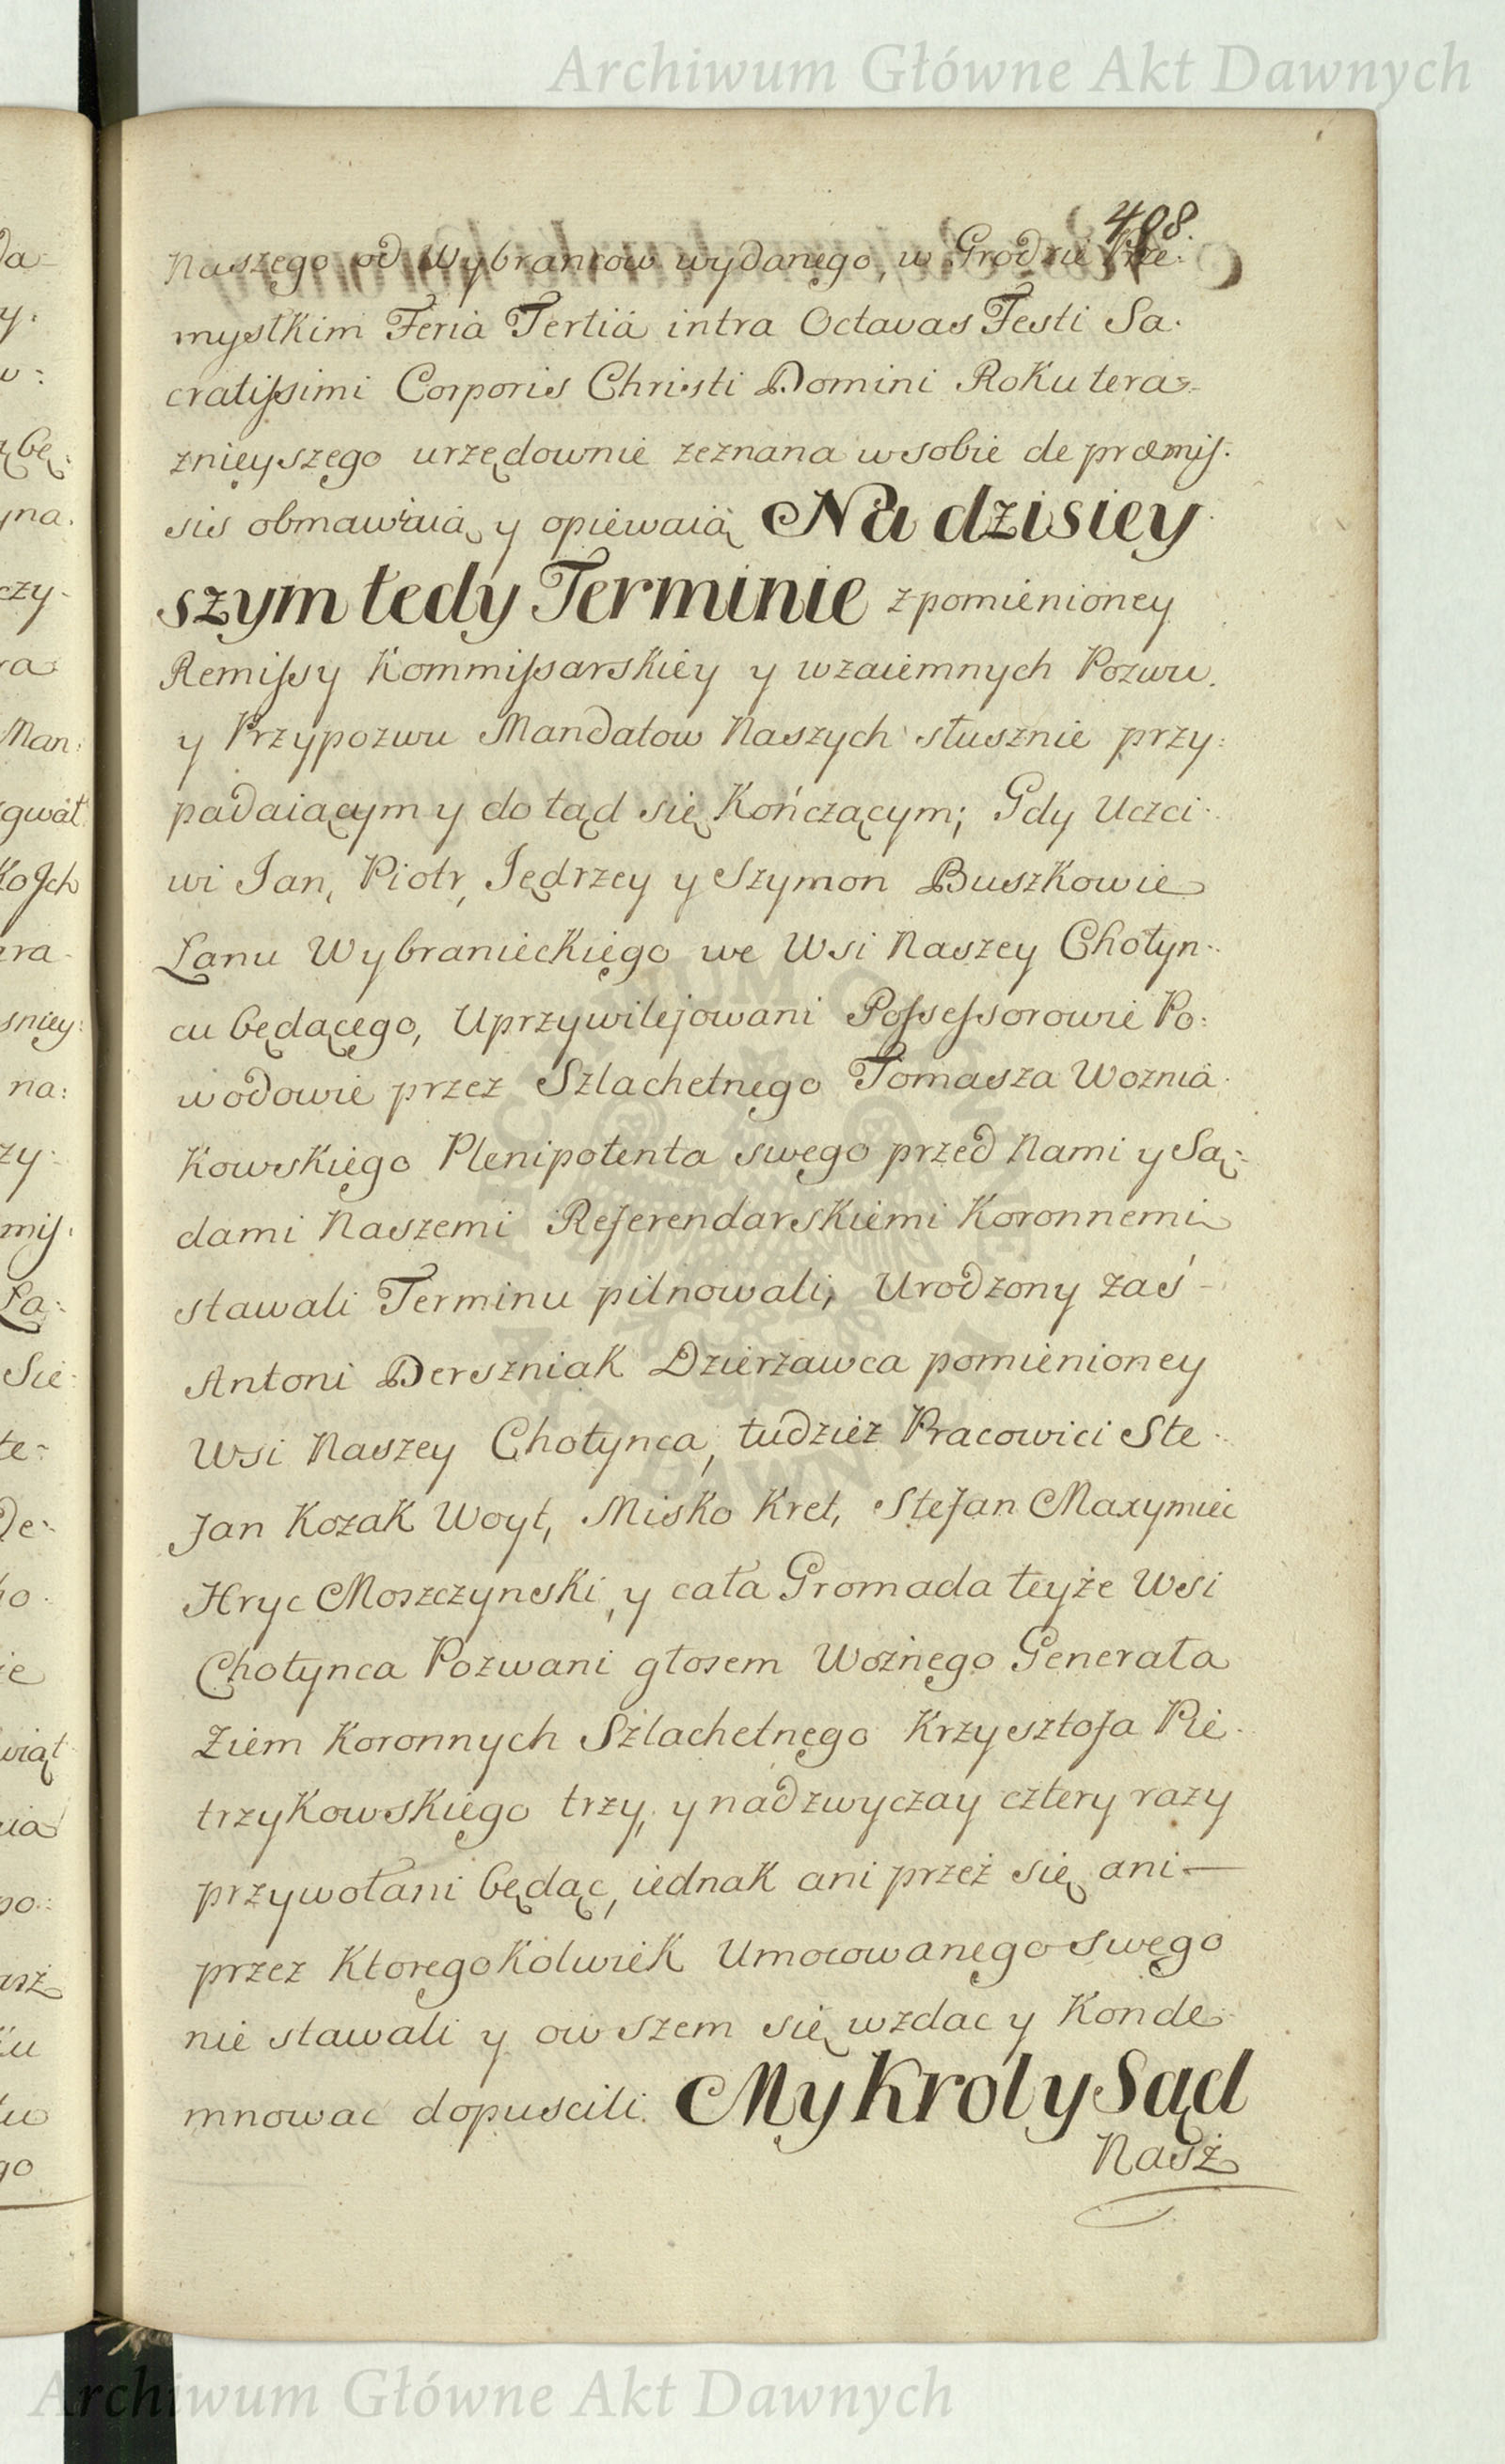 Archiwum Główne Akt Dawnych
408.
Naszego od Wybrancow wydanego, w Grodzie Prze:
mystkim Feria Tertiâ intra Octavas Festi Sa:
cratissimi Corporis Christi Domini Roku tera:
znieyszego urzędownie zeznana w sobie de præmis:
sis obmawiaią y opiewaią Na dzisiey
szym tedy Terminie z pomienioney
Remissy Kommissarskiey y wzaiemnych Pozwu
y Przypozwu Mandatow Naszych słusznie przy:
padaiącym y do tąd się Kończącym; Gdy Uczci:
wi Jan, Piotr, Jędrzey y Szymon Buszkowie
Łanu Wybranieckiego we Wsi Naszey Chotyn:
cu będącego, Uprzywilejowani Possessorowie Po:
wodowie przez Szlachetnego Tomasza Woznia:
Kowskiego Plenipotenta swego przed Nami y Są:
dami Naszemi Referendarskiemi Koronnemi
stawali Terminu pilnowali, Urodzony zaś -
Antoni Derszniak Dzierżawca pomienioney
Wsi Naszey Chotynca, tudzież Pracowici Ste:
fan Kozak Woyt, Misko Kret, Stefan Maxymiec
Hryc Moszczynski, y cała Gromada teyże Wsi
Chotynca Pozwani głosem Woźnego Generała
Ziem Koronnych Szlachetnego Krzysztofa Pie:
trzykowskiego trzy, y nadzwyczay cztery razy
przywołani będąc, iednak ani przez się ani —
przez Ktoregokolwiek Umocowanego swego
nie stawali y owszem się wzdac y Konde:
mnowac dopuscili. My Krol y Sąd
Nasz
Archiwum Główne Akt Dawnych